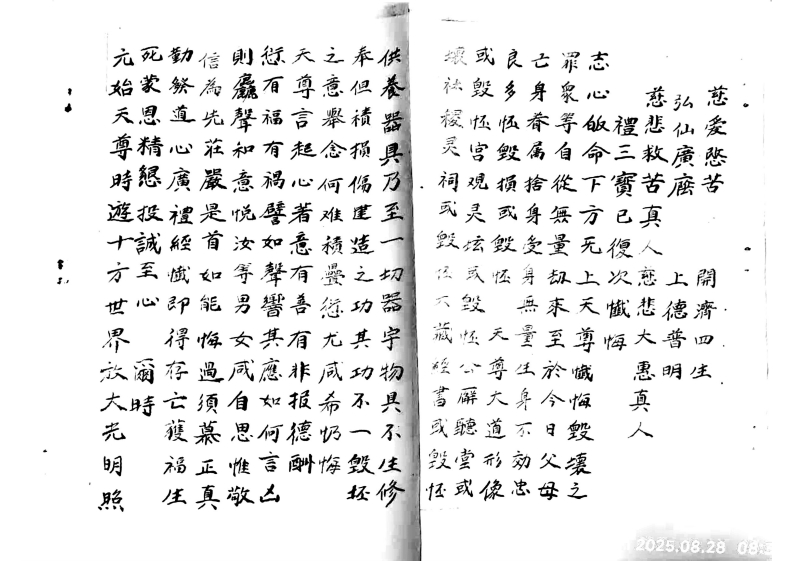 慈愛悲苦 開濟四生
弘仙廣座 上德普明
慈悲救苦真人 慈悲大惠真人
禮三寳已 復次懺悔
志心皈命下方无上天尊懺悔毀壞之
罪衆等自從無量劫來至於今日父母
亡身眷属捨身受身無量生身不効忠
良多恠毀損或毀恠天尊大道形像
或毀恠宮观灵坛或毀恠公廨聽堂或
壞社稷灵祠或毀恠大藏經書或毀恠
供養器具乃至一切器宇物具不生修
奉但積損傷建造之功其功不一毀坯
之意舉念何难積疊愆尤咸希忏悔
天尊言起心著意有善有非报德酬
愆有福有禍譬如聲響其應如何言凶
則麤聲和意悦汝等男女咸自思惟敬
信為先莊嚴是首如能悔過須慕正真
勤修道心廣禮經懺即得存亡獲福生
死蒙恩精懇投誠至心 爾時
元始天尊時遊十方世界放大光明照
2025.08.28 08: